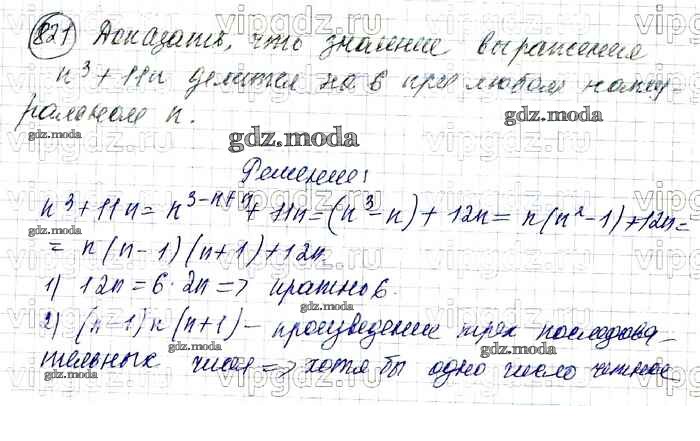 821 Доказать, что значение выражения
n³ + 11n делится на 6 при любом нату-
ральном n.
gdz.moda
Решение:
n³ + 11n = n³ - n + n + 11n = (n³ - n) + 12n = n(n² - 1) + 12n =
= n(n - 1)(n + 1) + 12n
1) 12n = 6 · 2n => кратно 6.
2) (n - 1)n(n + 1) - произведение трёх последова-
тельных чисел => хотя бы одно число четное
vipgdz.ru